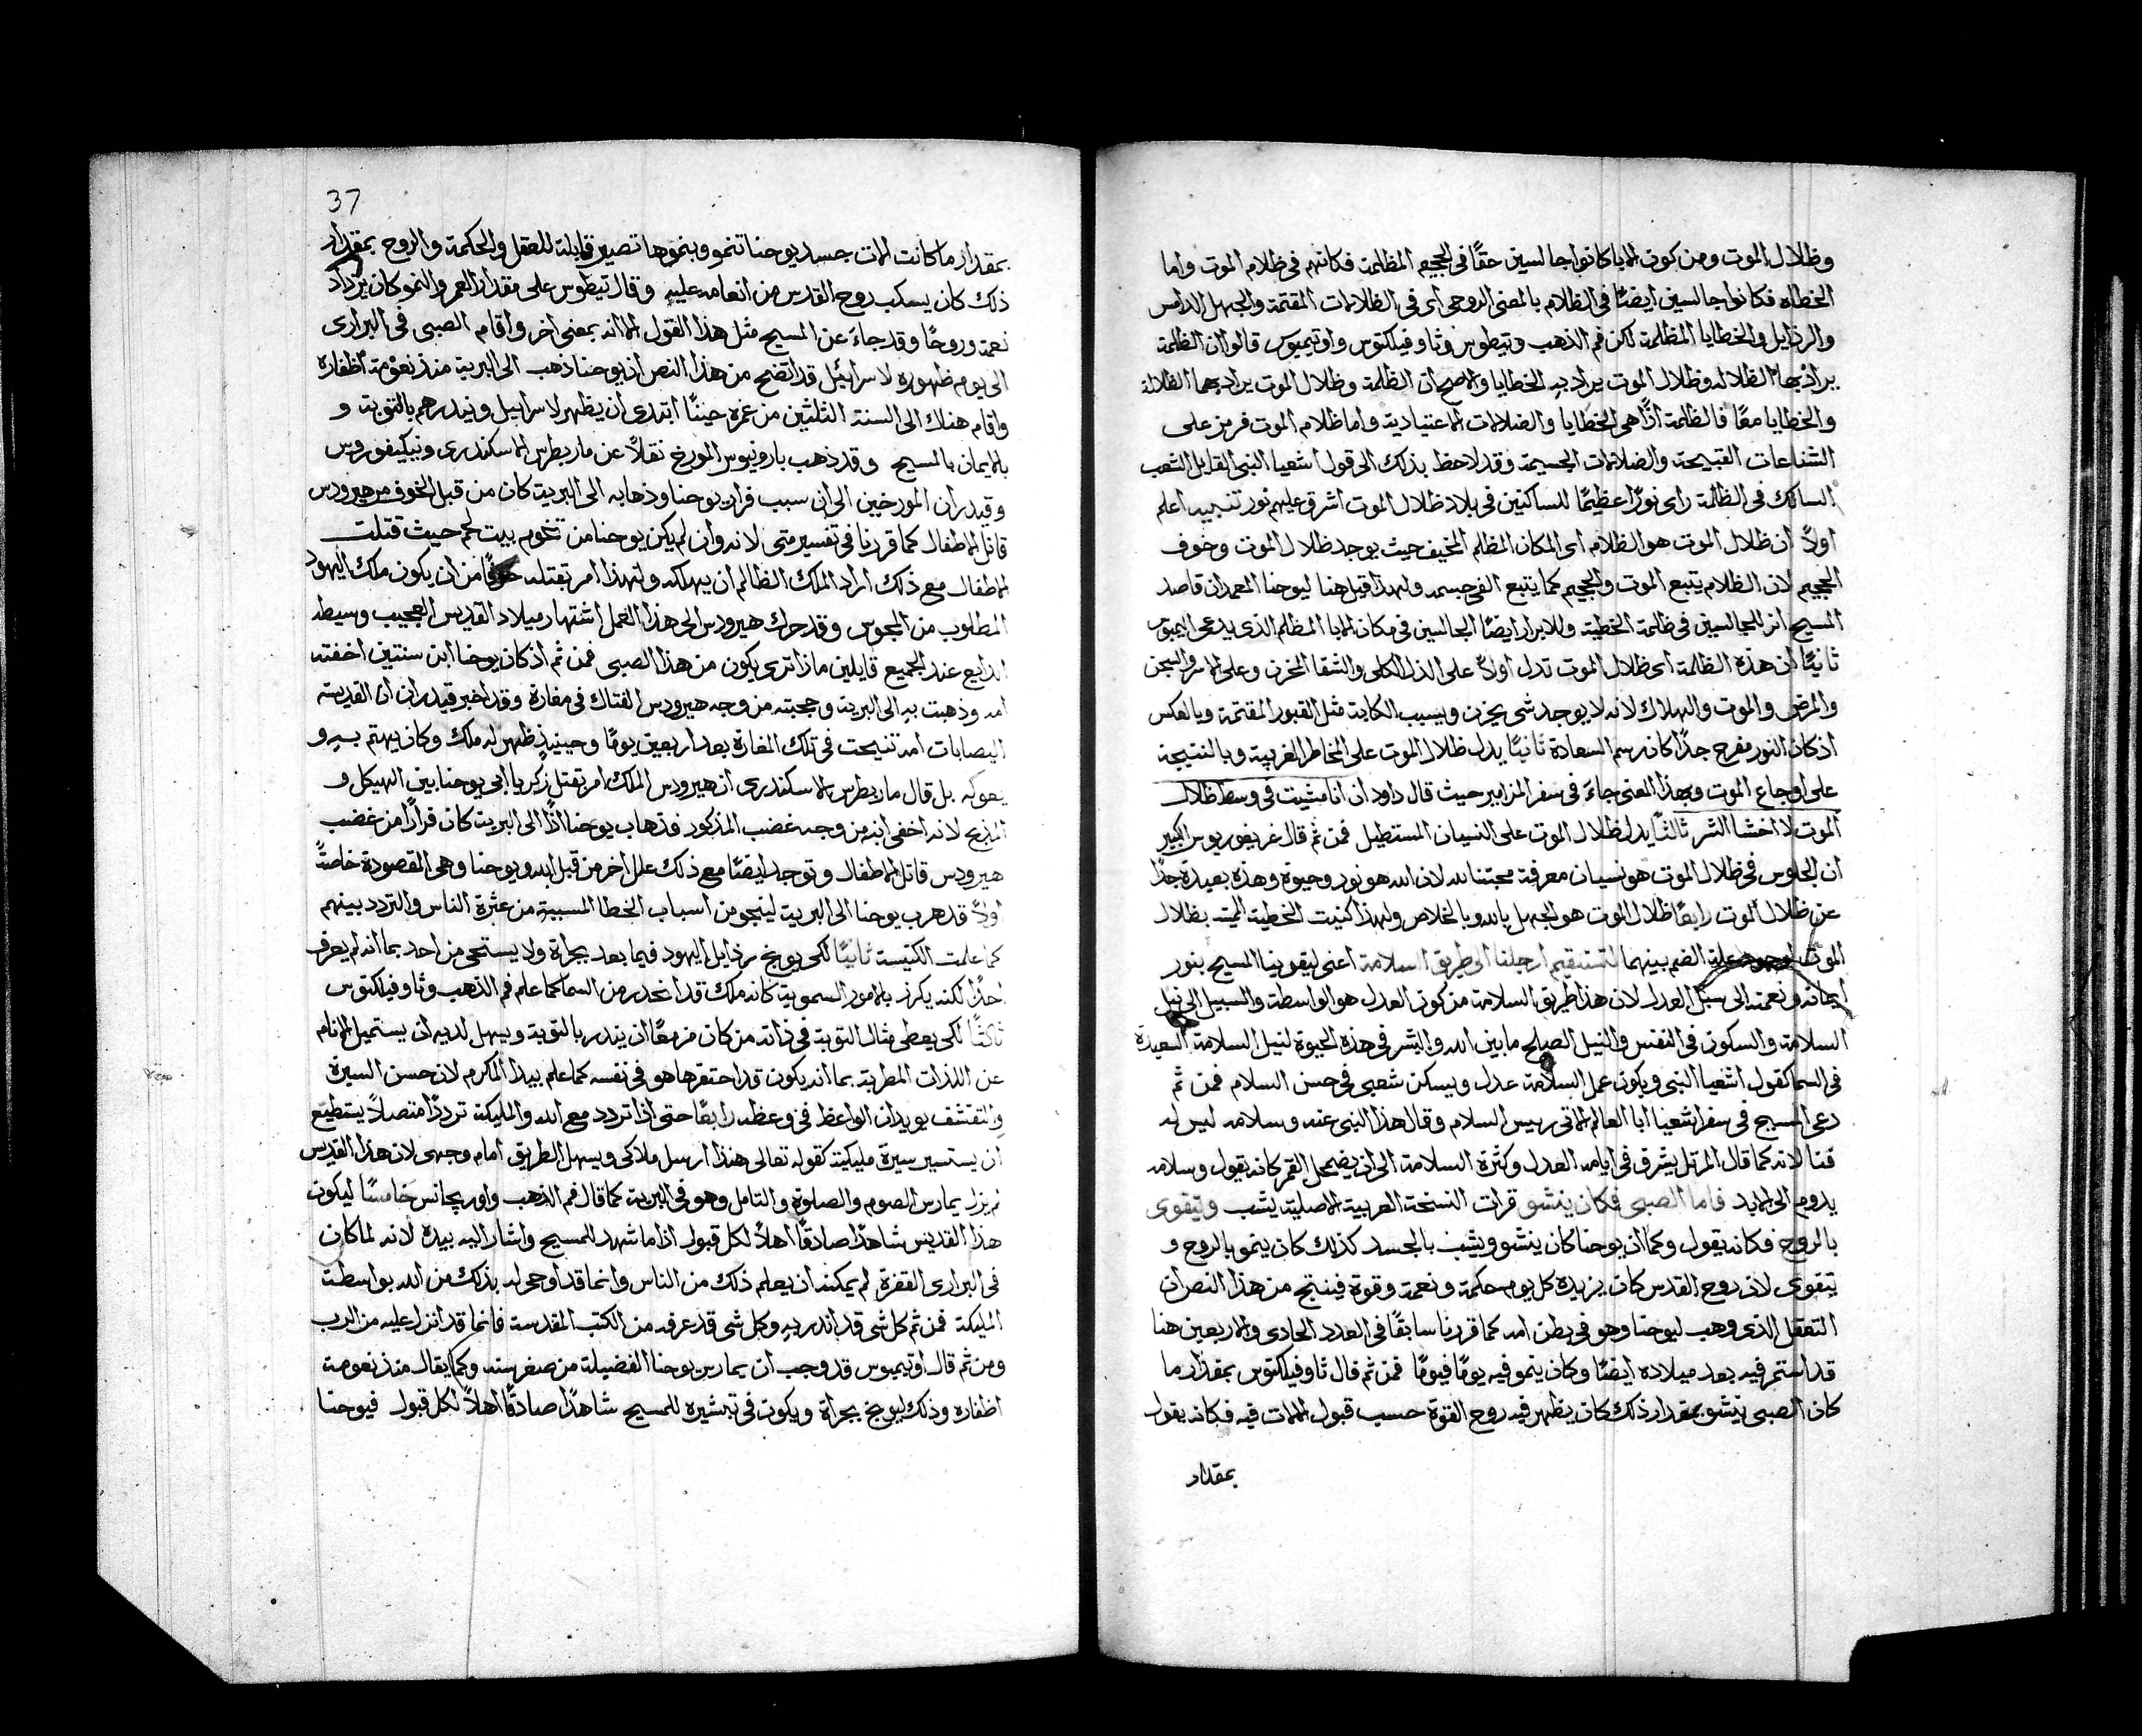 وظلال الموت ومن كون الابا كانوا جالسين حقًا في الجحيم المظلمة فكانهم في ظلام الموت واما
الخطاه فكانوا جالسين ايضًا في الظلام بالمعنى الروحي اى في الظلامات المقتمة والجهل الدامس
والرذايل والخطايا المظلمة لكن فم الذهب وتيطوس وثاوفيلكتوس واوتيميوس قالوا ان الظلمة
يراد بها الضلاله وظلال الموت يراد به الخطايا والاصح ان الظلمة وظلال الموت يراد بهما الضلالة
والخطايا معًا فالظلمة اذًا هي الخطايا والضلالات الاعتيادية واما ظلام الموت فرمز على
الشناعات القبيحة والضلالات الجسيمة وقد لاحظ بذلك الى قول اشعيا النبي القايل الشعب
السالك في الظلمة راى نورًا عظيمًا للساكنين في بلاد ظلال الموت اشرق عليهم نور تنبيه اعلم
اولاً ان ظلال الموت هو الظلام اى المكان المظلم المخيف حيث يوجد ظلال الموت وخوف
الجحيم لان الظلام يتبع الموت والجحيم كما يتبع الفي جسمه ولهذا قيل هنا ليوحنا المعمدان قاصد
المسيح انر للجالسين في ظلمة الخطية وللابرار ايضًا الجالسين في مكان الابا المظلم الذى يدعى اليمبوس
ثانيًا ان هذه الظلمة اى ظلال الموت تدل اولاً على الذل الكلى والشقا المحزن وعلى الاسر والسجن
والمرض والموت والهلاك لانه لا يوجد شى يحزن ويسبب الكابة مثل القبور المقتمة وبالعكس
اذ كان النور مفرح جدًا كانه رسم السعادة ثانيًا يدل ظلال الموت على المخاطر القريبة وبالنتيجة
على اوجاع الموت وبهذا المعنى جاءَ في سفر المزامير حيث قال داود ان انا مشيت في وسط ظلال
الموت لا اخشا الشر ثالثًا يدل ظلال الموت على النسيان المستطيل فمن ثم قال غريغوريوس الكبير
ان الجلوس في ظلال الموت هو نسيان معرفة محبتنا لله لان الله هو نور وحيوة وهذه بعيدة جدًا
عن ظلال الموت رابعًا ظلال الموت هو الجهل بالله وبالخلاص ولهذا كنيت الخطية الميتة بظلال
الموت لوجود علة الضم بينهما لتستقيم ارجلنا الى طريق السلامة اعنى ليقوينا المسيح بنور
ايمانه ونعمته الى سبل العدل لان هذا طريق السلامة من كون العدل هو الواسطة والسبيل الى نيل
السلامة والسكون في النفس والنيل الصلح ما بين الله والبشر في هذه الحيوة لنيل السلامة السعيدة
في السما كقول اشعيا النبي ويكون عمل السلامة عدل ويسكن شعبى في حسن السلام فمن ثم
دعى المسيح في سفر اشعيا ابا العالم الاتى رييس السلام وقال هذا النبي عنه وسلامه ليس له
فنا لانه كما قال المرتل يشرق في ايامه العدل وكثرة السلامة الى ان يضمحل القمر كانه يقول وسلامه
يدوم الى الابد فاما الصبى فكان ينشو قرات النسخة العربية الاصلية يشب ويتقوى
بالروح فكانه يقول وكما ان يوحنا كان ينشو ويشب بالجسد كذلك كان ينمو بالروح و
يتقوى لان روح القدس كان يزيده كل يوم حكمة ونعمة وقوة فينتج من هذا النص ان
التعقل الذى وهب ليوحنا وهو في بطن امه كما قررنا سابقًا في العدد الحادى والاربعين هنا
قد استمر فيه بعد ميلاده ايضًا وكان ينمو فيه يومًا فيومًا فمن ثم قال ثاوفيلكتوس بمقدار ما
كان الصبى ينشو بمقدار ذلك كان يظهر فيه روح القوة حسب قبول الالات فيه فكانه يقول
بمقدار
37
بمقدار ما كانت الات جسد يوحنا تنمو وبنموها تصير قابلة للعقل والحكمة والروح بمقدار
ذلك كان يسكب روح القدس من انعامه عليه وقال تيطوس على مقدار العمر والنمو كان يزداد
نعمة وروحًا وقد جاءَ عن المسيح مثل هذا القول الا انه بمعنى اخر واقام الصبى في البرارى
الى يوم ظهوره لاسراييل قد اتضح من هذا النص ان يوحنا ذهب الى البرية منذ نعومة اظفاره
واقام هناك الى السنة الثلثين من عمره حينًا ابتدى ان يظهر لاسراييل وينذرهم بالتوبة و
بالايمان بالمسيح وقد ذهب بارونيوس المورخ نقلاً عن مار بطرس الاسكندرى ونيكيفوروس
وقيدران المورخين الى ان سبب فرار يوحنا وذهابه الى البرية كان من قبل الخوف من هيرودس
قاتل الاطفال كما قررنا في تفسير متى لانه وان لم يكن يوحنا من تخوم بيت لحم حيث قتلت
الاطفال مع ذلك اراد الملك الظالم ان يهلكه ولهذا امر بقتله خوفًا من ان يكون ملك اليهود
المطلوب من المجوس وقد حرك هيرودس الى هذا العمل اشتهار ميلاد القديس العجيب وسيطه
الذايع عند الجميع قايلين ماذا ترى يكون من هذا الصبى فمن ثم اذ كان يوحنا ابن سنتين اخفته
امه وذهبت به الى البرية وحجبته من وجه هيرودس الفتاك في مغارة وقد اخبر قيدران ان القديسة
اليصابات امه تنيحت في تلك المغارة بعد اربعين يومًا وحينيذٍ ظهر له ملك وكان يهتم به و
يعوله بل قال مار بطرس الاسكندرى ان هيرودس الملك امر بقتل زكريا ابى يوحنا بين الهيكل و
المذبح لانه اخفى ابنه من وجه غضب المذكور فذهاب يوحنا اذًا الى البرية كان فرارًا من غضب
هيرودس قاتل الاطفال وتوجد ايضًا مع ذلك علل اخر من قبل الله ويوحنا وهي المقصودة خاصةً
اولاً قد هرب يوحنا الى البرية لينجو من اسباب الخطا المسببة من عثرة الناس والتردد بينهم
كما علمت الكنيسة ثانيًا لكى يوبخ رذايل اليهود فيما بعد بجراة ولا يستحى من احد بما انه لم يعرف
احدًا لكنه يكرز بالامور السموية كانه ملك قد انحدر من السما كما علم فم الذهب وثاوفيلكتوس
ثالثًا لكى يعطى مثال التوبة في ذاته من كان مزمعًا ان ينذر بالتوبة ويسهل لديه ان يستميل الانام
عن اللذات المطربة بما انه يكون قد احتقرها هو في نفسه كما علم بيدا المكرم لان حسن السيرة
والتقشف يويدان الواعظ في وعظه رابعًا حتى اذا تردد مع الله والمليكة ترددًا متصلاً يستطيع
ان يستسير سيرة مليكية كقوله تعالى هنذا ارسل ملاكى ويسهل الطريق امام وجهى لان هذا القديس
لم يزل يمارس الصوم والصلوة والتامل وهو في البرية كما قال فم الذهب واوريجانس خامسًا ليكون
هذا القديس شاهدًا صادقًا اهلاً لكل قبول اذا ما شهد للمسيح واشار اليه بيده لانه لما كان
في البرارى القفرة لم يمكنه ان يعلم ذلك من الناس وانما قد اوحى له بذلك من الله بواسطة
المليكة فمن ثم كل شى قد انذر به وكل شى قد عرفه من الكتب المقدسة فانما قد انزل عليه من الرب
ومن ثم قال اوتيميوس قد وجب ان يمارس يوحنا الفضيلة من صغر سنه وكما يقال منذ نعومة
اظفاره وذلك ليوبخ بجراة ويكون في تبشيره للمسيح شاهدًا صادقًا اهلاً لكل قبول فيوحنا